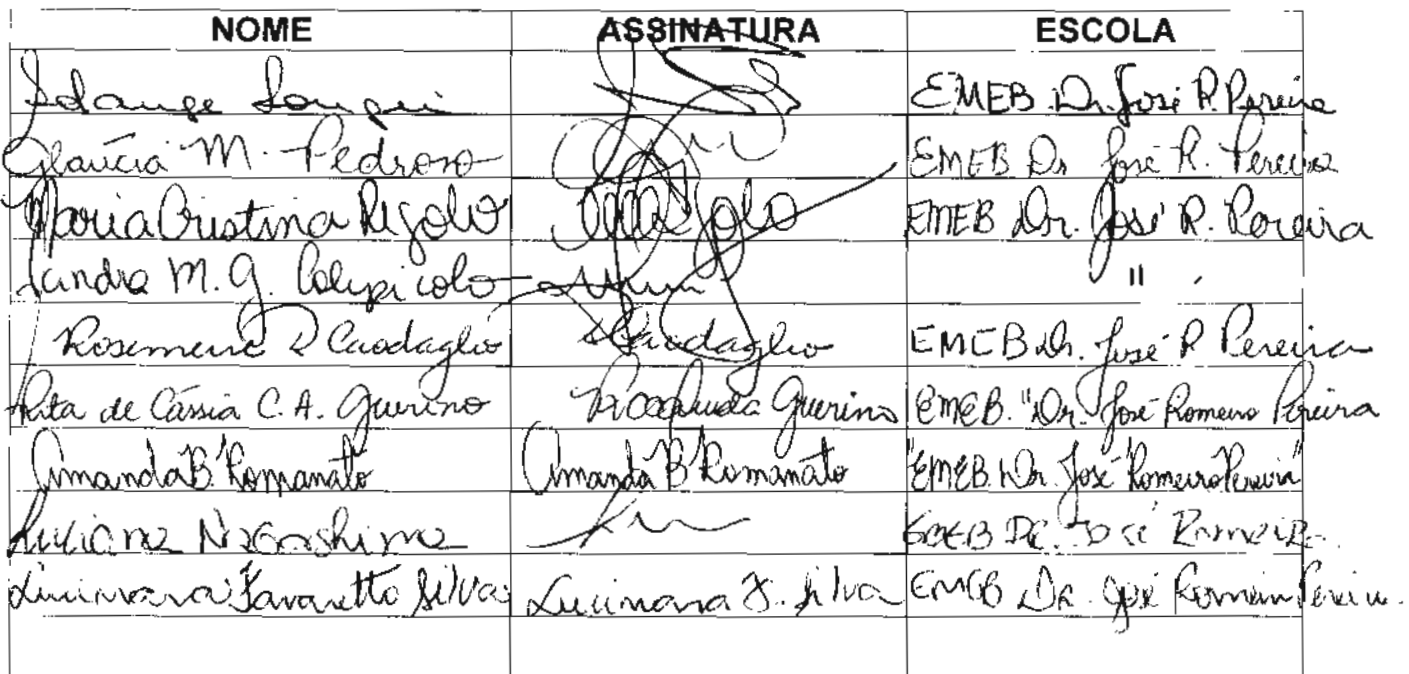 NOME ASSINATURA ESCOLA
Solange EMEB Dr. José R. Pereira
Glaúcia M. Pedroso EMEB Dr José R. Pereira
Maria Cristina Rigolo EMEB Dr. José R. Pereira
Sandra M. G. "
Rosemeire Caodaglio Caodaglio EMEB Dr. José R Pereira
Rita de Cássia C. A. Guerino Guerino EMEB. "Dr. José Romeiro Pereira
Amanda B. Romanato Amanda B. Romanato "EMEB. Dr. José Romeiro Pereira"
Luciana Nagashima EMEB Dr. José Romeiro
Lucimara Favaretto Silva Lucimara F. Silva EMEB Dr. José Romeiro Pereira.